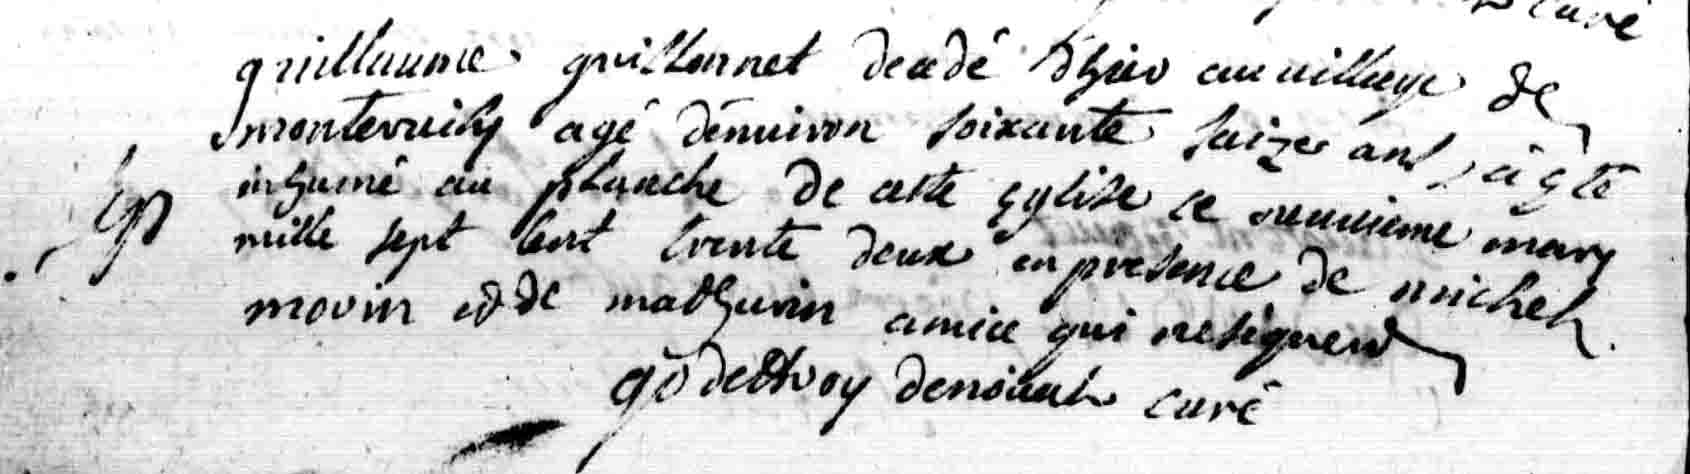 curé
guillaume guillonnet decedé dhier au village de
agé denuiron soixante saize ans a été
inhumé au planche de cette eglise ce neuuieme mars
mille sept cent trente deux en presence de michel
morin et de mathurin amice qui ne signent
godeffroy curé